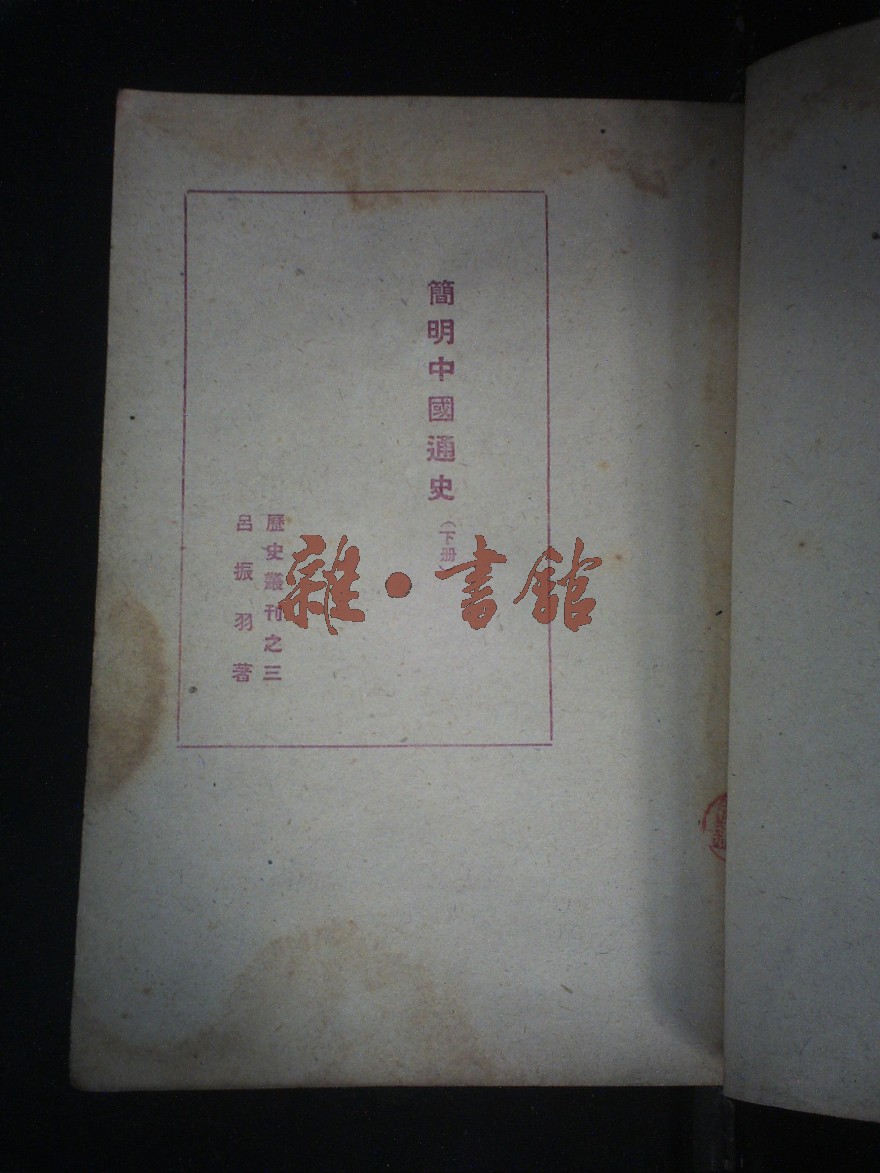 簡明中國通史（下册）
歷史叢刊之三
呂振羽著
雜·書館